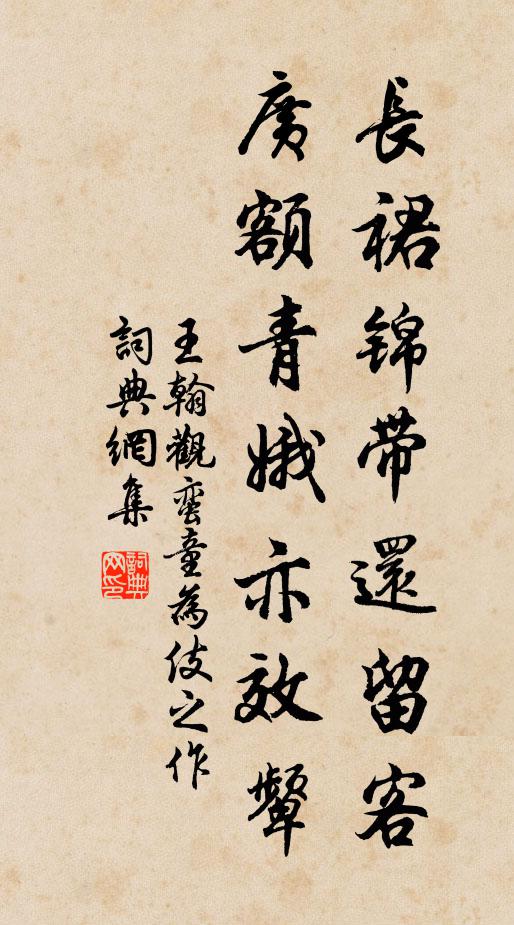 長裙锦带還留客
廣額青娥亦效顰
王翰觀蛮童為伎之作
詞典網集
詞典网印